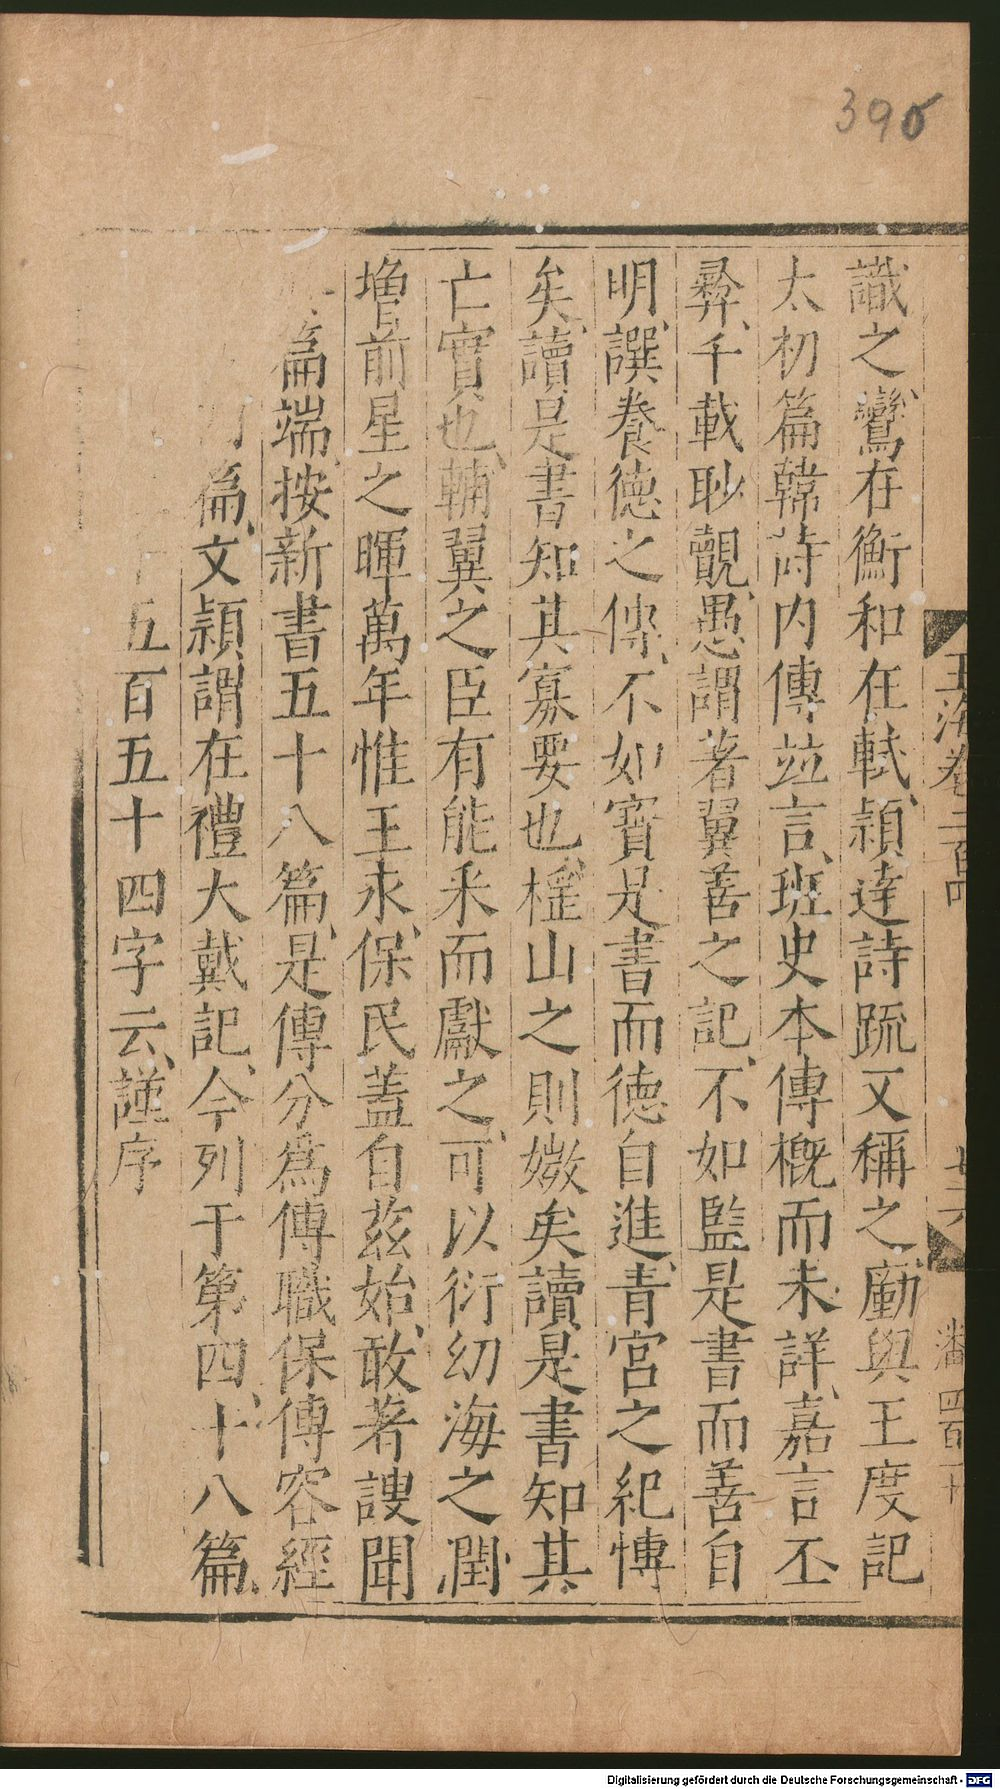 390
識之鸞在衡和在軾頴達詩疏又稱之劘與王度記
太初篇韓詩内傳竝言班史本傳槪而未詳嘉言丕
彞千載眇覿愚謂著翼善之記不如監是書而善自
明譔養德之傳不如寳是書而德自進青宮之紀慱
矣讀是書知其寡要也櫂山之則媺矣讀是書知其
亡實也輔翼之臣有能釆而獻之可以衍幼海之潤
增前星之暉萬年惟王永保民蓋自茲始敢著謏聞
篇端按新書五十八篇是傳分爲傳職保傅容經
篇文頴謂在禮大戴記今列于第四十八篇
五百五十四字云謹序
玉海卷二百四
七六
潘
四百一十
Digitalisierung gefördert durch die Deutsche Forschungsgemeinschaft - DFG